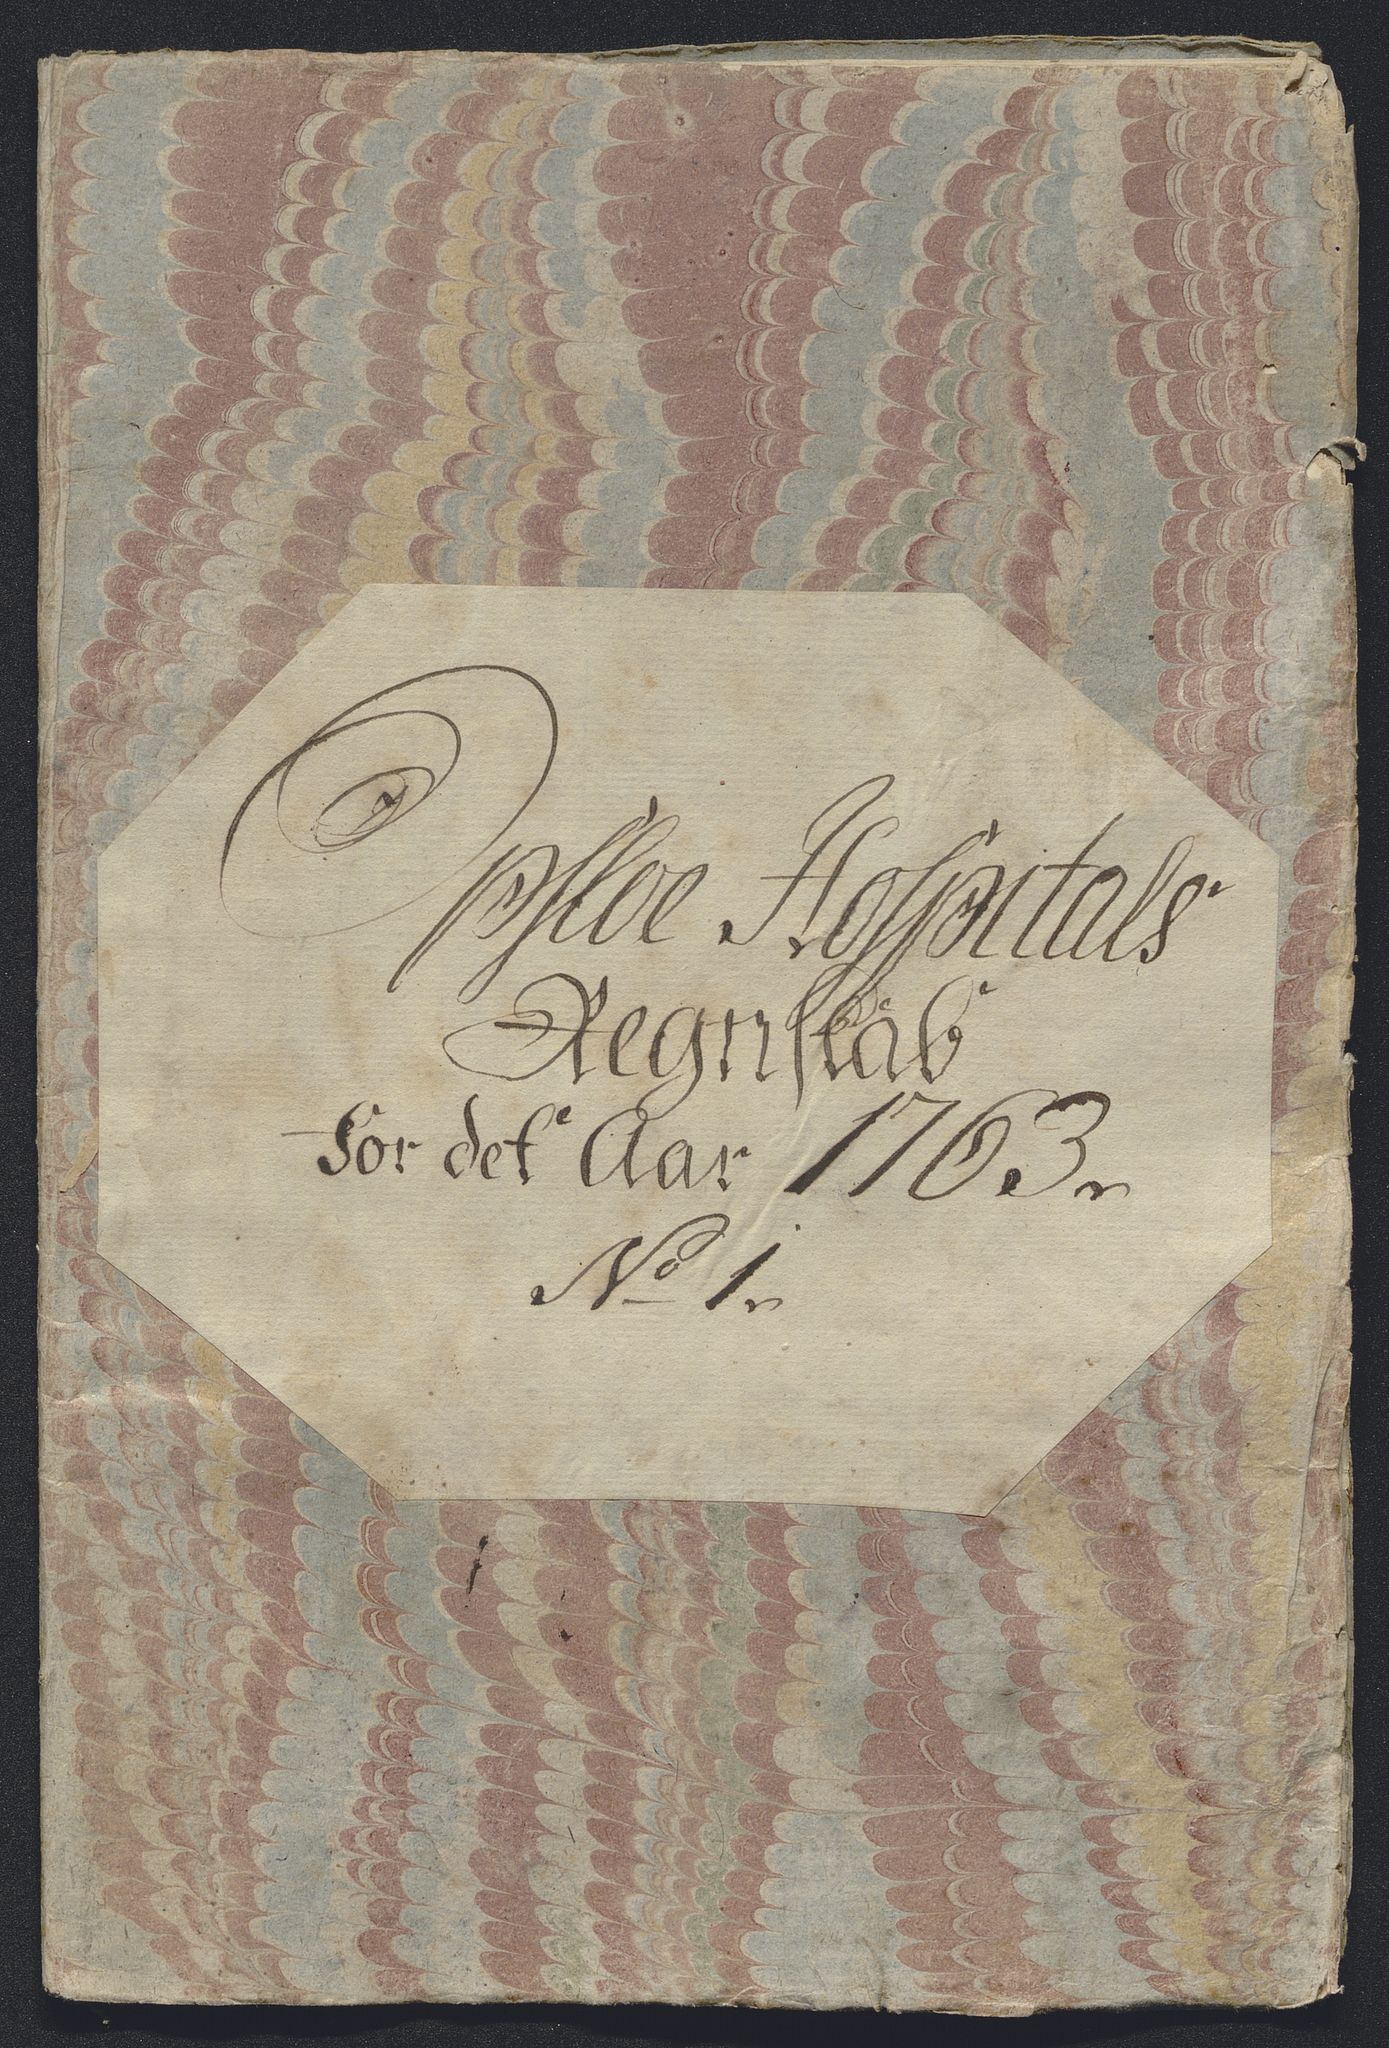 Opsloe Hospitals
Regnskab
for det Aar 1763.
No 1.